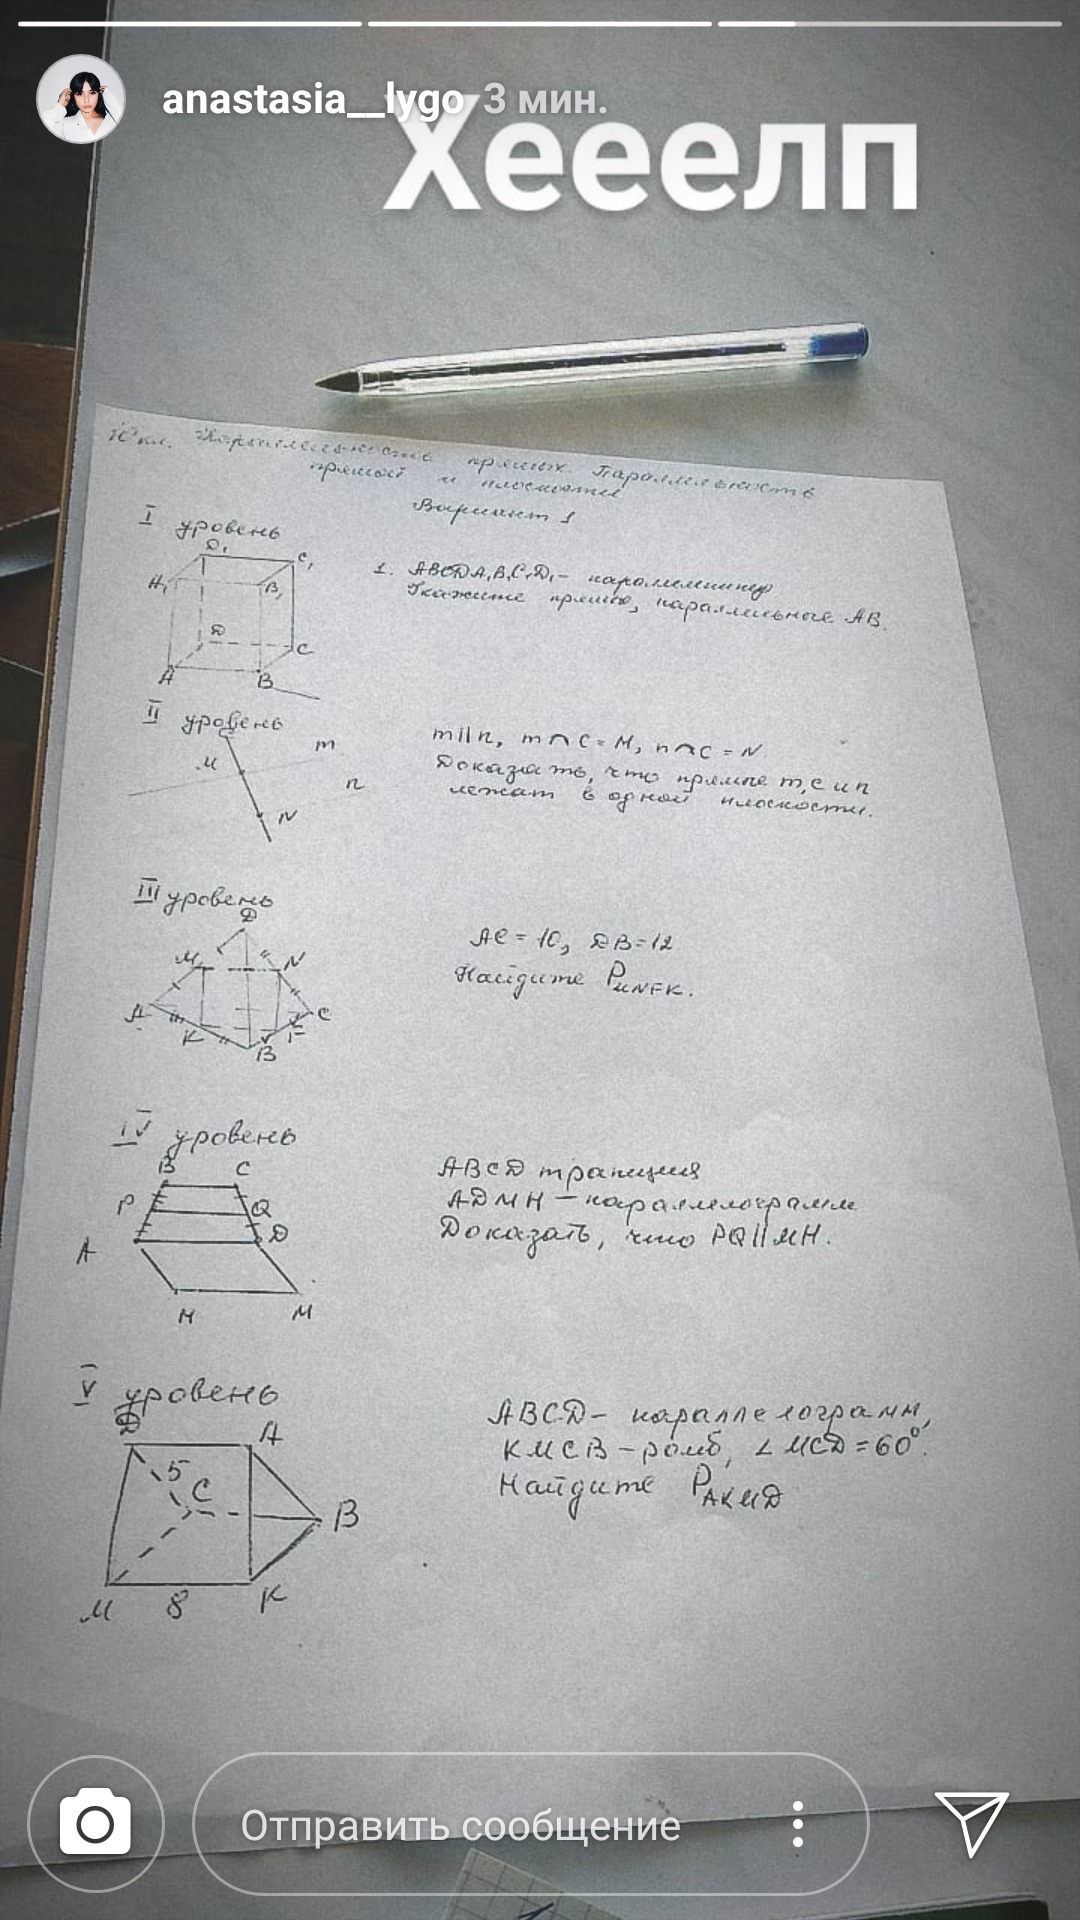 anastasia__lygo 3 мин.
Хееелп
10 кл. Параллельность прямых. Параллельность
прямой и плоскости
Вариант 1
I уровень
D₁
C₁
A₁
B₁
D
C
A
B
1. ABCDA₁B₁C₁D₁ - параллелепипед
Укажите прямые, параллельные AB.
II уровень
C
m
M
n
N
m||n, m∩C=M, n∩C=N.
Доказать, что прямые m, c и n
лежат в одной плоскости.
III уровень
D
M
N
A
C
K
F
B
AC = 10, DB = 12
Найдите P_MNFK.
IV уровень
B
C
P
Q
A
D
H
M
ABCD трапиция
ADMH - параллелограмм
Доказать, что PQ||MH.
V уровень
D
A
5
C
B
M
8
K
ABCD - параллелограмм,
KMCB - ромб, ∠MCD = 60°.
Найдите P_AKMD
Отправить сообщение